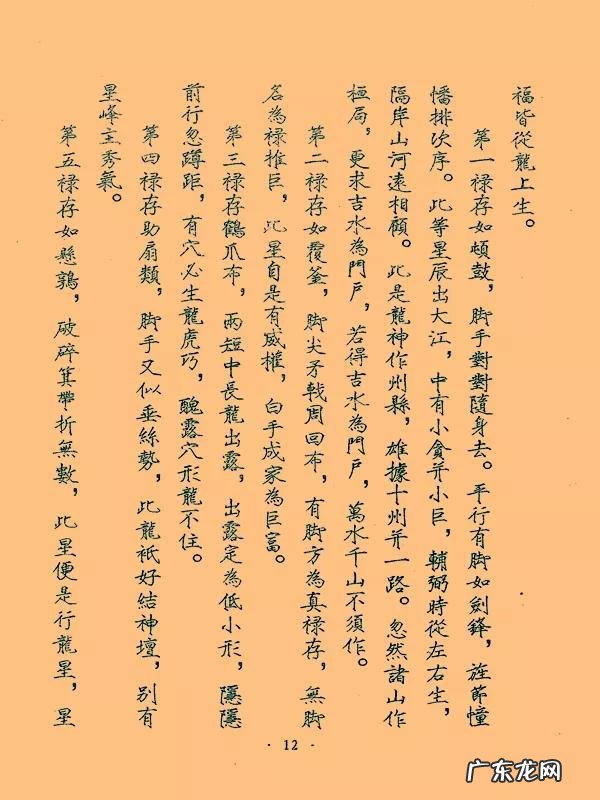 福皆從龍上生。
第一禄存如頓鼓，脚手對對隨身去。平行有脚如劍鋒，旌節幢
幡排次序。此等星辰出大江，中有小貪并小巨，輔弼時從左右生，
隔岸山河遠相顧。此是龍神作州縣，雄據十州并一路。忽然諸山作
垣局，更求吉水為門戶，若得吉水為門戶，萬水千山不須作。
第二禄存如覆釜，脚尖矛戟周回布，有脚方為真禄存，無脚
名為禄推巨，此星自是有威權，白手成家為巨富。
第三禄存鶴爪布，兩短中長龍出露，出露定為低小形，隱隱
前行忽蹲距，有穴必生龍虎巧，醜露穴形龍不住。
第四禄存肋扇類，脚手又似垂絲勢，此龍祇好結神壇，別有
星峰主秀氣。
第五禄存如懸鶉，破碎箕帶折無數，此星便是行龍星，星
· 12 ·
广东龙网